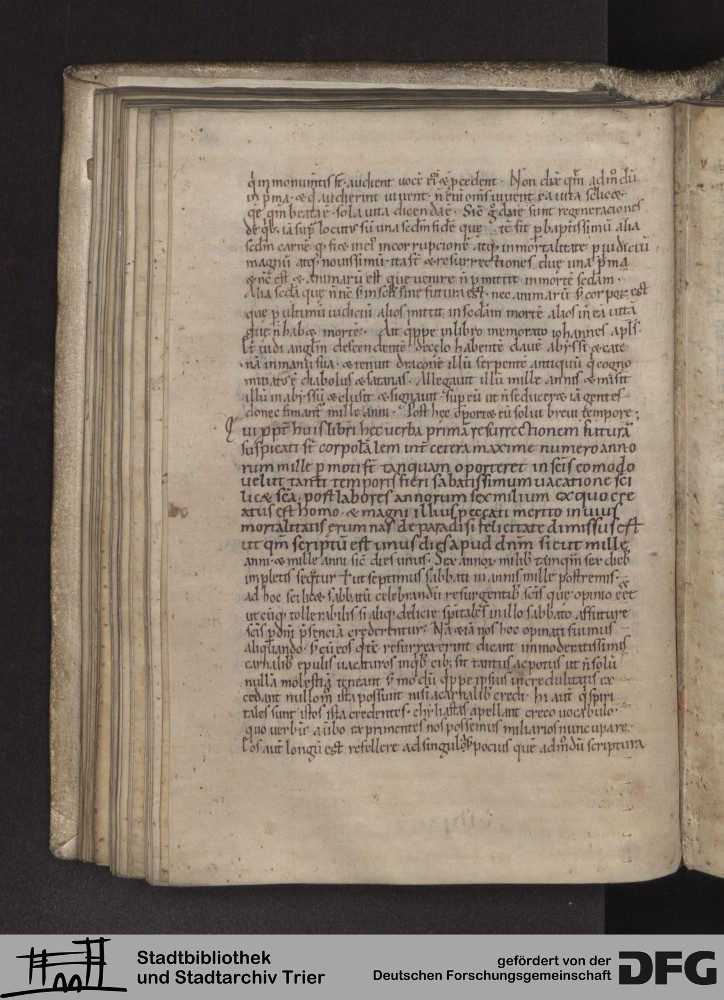 q in monumtis st. audient uocē ei & pcedent. Non dix qm admodū
in pma. & q audierint uiuent. n eni oms uiuent ea uita scilicet
que qm beata ē sola uita dicenda ē. Sic g due sunt regenerationes
de qb; iā sup locutus sū una scdm fidē que fit p baptismū alia
scdm carnē q fiet in ei incorruptione atq; inmortalitate p iudiciū
magnū atq; nouissimū. ita st & resurrectiones due una pma
& nc est & animarū est que uenire n pmittit in mortē scdam.
Alia scda que n nc s in sclī fine futura est. nec animarū s corporū est
que p ultimū iudiciū alios mittit in scdam mortē alios in ea uitā
que n habet mortē. Ait qppe in libro memorato iohannes apls.
Et uidi anglm descendentē de celo habentē clauē abyssi & cate
nā in manu sua. & tenuit draconē illū serpentē antiquū q cogno
minatus ē diabolus & satanas. Allegauit illū mille annis & misit
illū in abyssū & clusit & signauit sup eū ut n seduceret iā gentes
donec finiant mille anni. Post hec oportet eū solui breui tempore;
Qui ppt huius libri hec uerba primā resurrectionem futurā
suspicati st corporalem int cetera maxime numero anno
rum mille pmoti st tanquam oporteret in scis eo modo
uelut tanti temporis fieri sabatissimum uacatione sci
licet scā. post labores annorum sex milium ex quo cre
atus est homo. & magni illius peccati merito in uius
mortalitatis erumnas de paradisi felicitate dimissus est
ut qm scriptū est unus dies apud dnm sicut mille
anni. & mille anni sic dies unus. Sex annoꝝ milib tamqm sex dieb
impletis seqtur ut septimus sabbati in annis mille postremis.
ad hoc scilicet sabbatū celebrandū resurgentib scis que opinio eet
ut cūq; tollerabilis si aliq delicie spitales in illo sabbato affuture
scis p dni psenciā crederentur. Nā & iā nos hoc opinati fuimus
aliquando. s cū eos q tc resurrexerint dicant inmoderatissimis
carnalib epulis uacaturos in qb cib; sit tantus ac potus ut n solū
nullā molestiā teneant s modū qppe ipsius incredulitatis ex
cedant nullom ista possunt nisi a carnalib credi. hi aut q spiri
tales sunt istos ista credentes. chyliastas apellant greco uocabulo.
quo uerbū a uibo exprimentes nos possemus miliarios nuncupare.
Eos aut longū est refellere ad singula s pocius que admodū scriptura
Stadtbibliothek
und Stadtarchiv Trier
gefördert von der
Deutschen Forschungsgemeinschaft
DFG